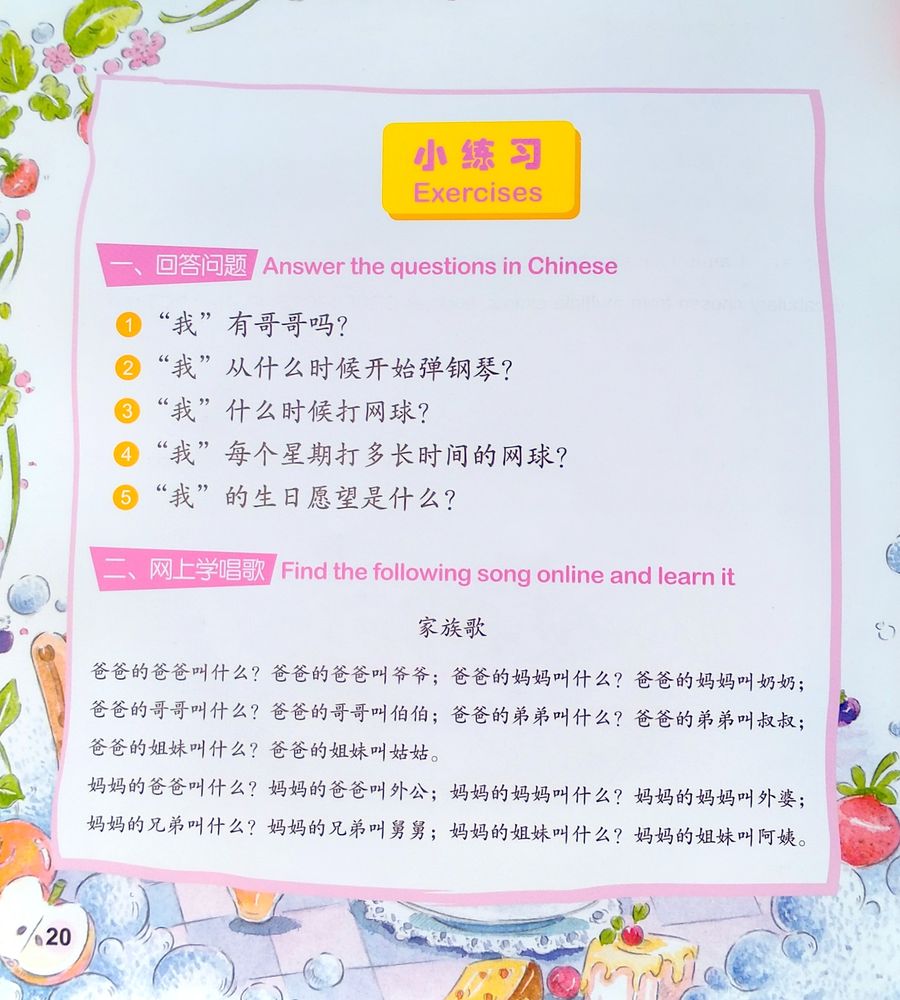 小练习
Exercises
一、回答问题 Answer the questions in Chinese
1 “我”有哥哥吗？
2 “我”从什么时候开始弹钢琴？
3 “我”什么时候打网球？
4 “我”每个星期打多长时间的网球？
5 “我”的生日愿望是什么？
二、网上学唱歌 Find the following song online and learn it
家族歌
爸爸的爸爸叫什么？爸爸的爸爸叫爷爷；爸爸的妈妈叫什么？爸爸的妈妈叫奶奶；
爸爸的哥哥叫什么？爸爸的哥哥叫伯伯；爸爸的弟弟叫什么？爸爸的弟弟叫叔叔；
爸爸的姐妹叫什么？爸爸的姐妹叫姑姑。
妈妈的爸爸叫什么？妈妈的爸爸叫外公；妈妈的妈妈叫什么？妈妈的妈妈叫外婆；
妈妈的兄弟叫什么？妈妈的兄弟叫舅舅；妈妈的姐妹叫什么？妈妈的姐妹叫阿姨。
20